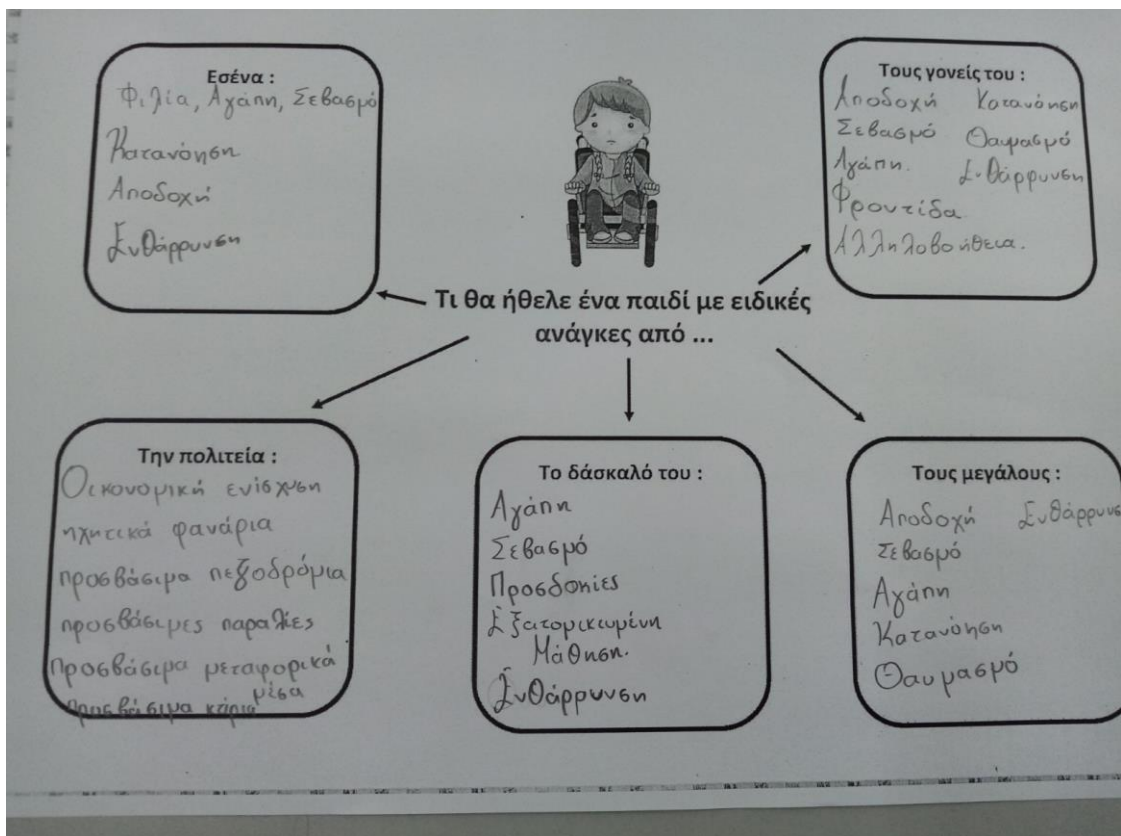 Εσένα :
Φιλία, Αγάπη, Σεβασμό
Κατανόηση
Αποδοχή
Ενθάρρυνση
Τους γονείς του :
Αποδοχή Κατανόηση
Σεβασμό Θαυμασμό
Αγάπη. Ενθάρρυνση
Φροντίδα
Αλληλοβοήθεια.
Τι θα ήθελε ένα παιδί με ειδικές
ανάγκες από ...
Την πολιτεία :
Οικονομική ενίσχυση
ηχητικά φανάρια
προσβάσιμα πεζοδρόμια
προσβάσιμες παραλίες
Προσβάσιμα μεταφορικά
μέσα
προσβάσιμα κτίρια
Το δάσκαλό του :
Αγάπη
Σεβασμό
Προσδοκίες
Εξατομικωμένη
Μάθηση.
Ενθάρρωνση
Τους μεγάλους :
Αποδοχή Ενθάρρυνσ
Σεβασμό
Αγάπη
Κατανόηση
Θαυμασμό